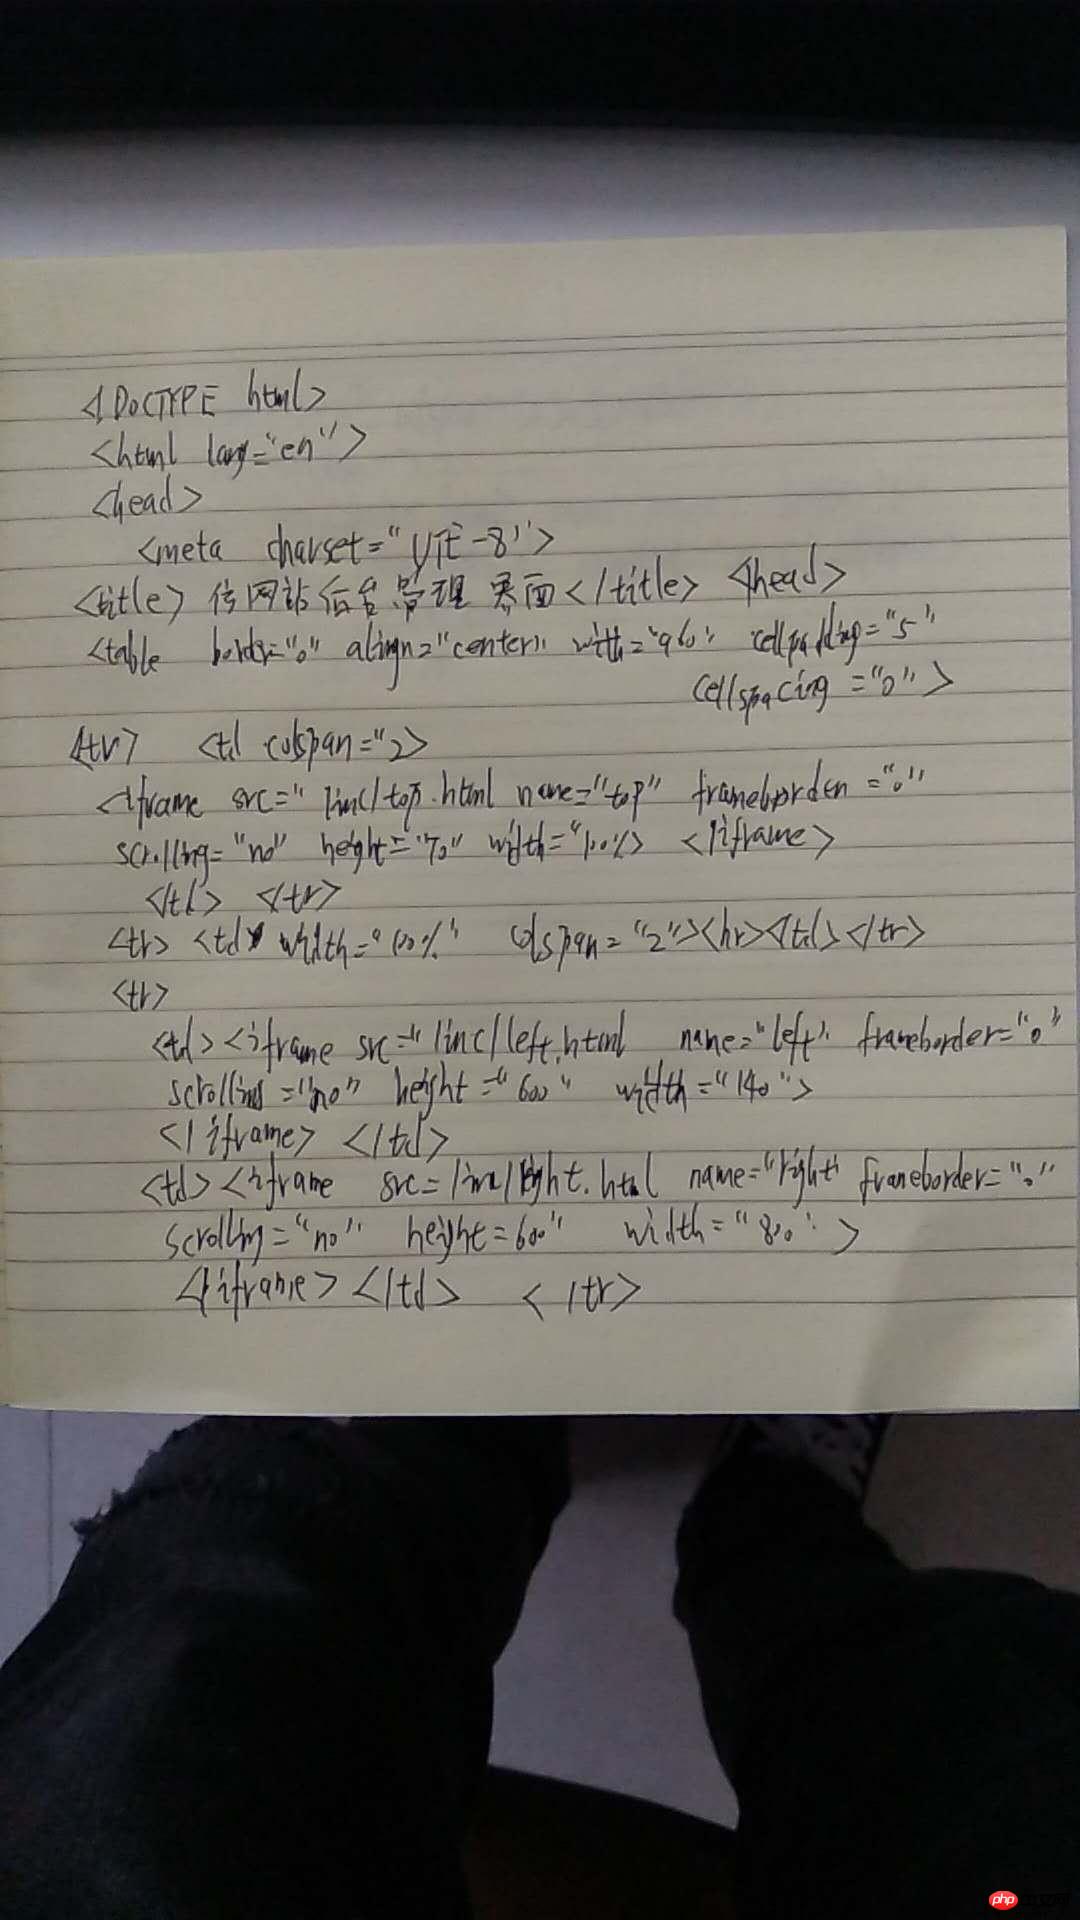 <!DOCTYPE html>
<html lang="en">
<head>
<meta charset="UTF-8">
<title> 传网站后台管理 界面</title> </head>
<table border="0" align="center" with="960" cellpadding="5"
cellspacing="0">
<tr> <td colspan="2>
<iframe src="/inc/top.html name="top" frameborder="0"
scrolling="no" height="70" width="100%> </iframe>
</td> </tr>
<tr> <td width="100%" colspan="2"><hr></td></tr>
<tr>
<td><iframe src="/inc/left.html name="left" frameborder="0"
scrolling="no" height="600" width="140">
</iframe> </td>
<td><iframe src=/inc/right.html name="right" frameborder="0"
scrolling="no" height=600" width="800">
</iframe></td> </tr>
php